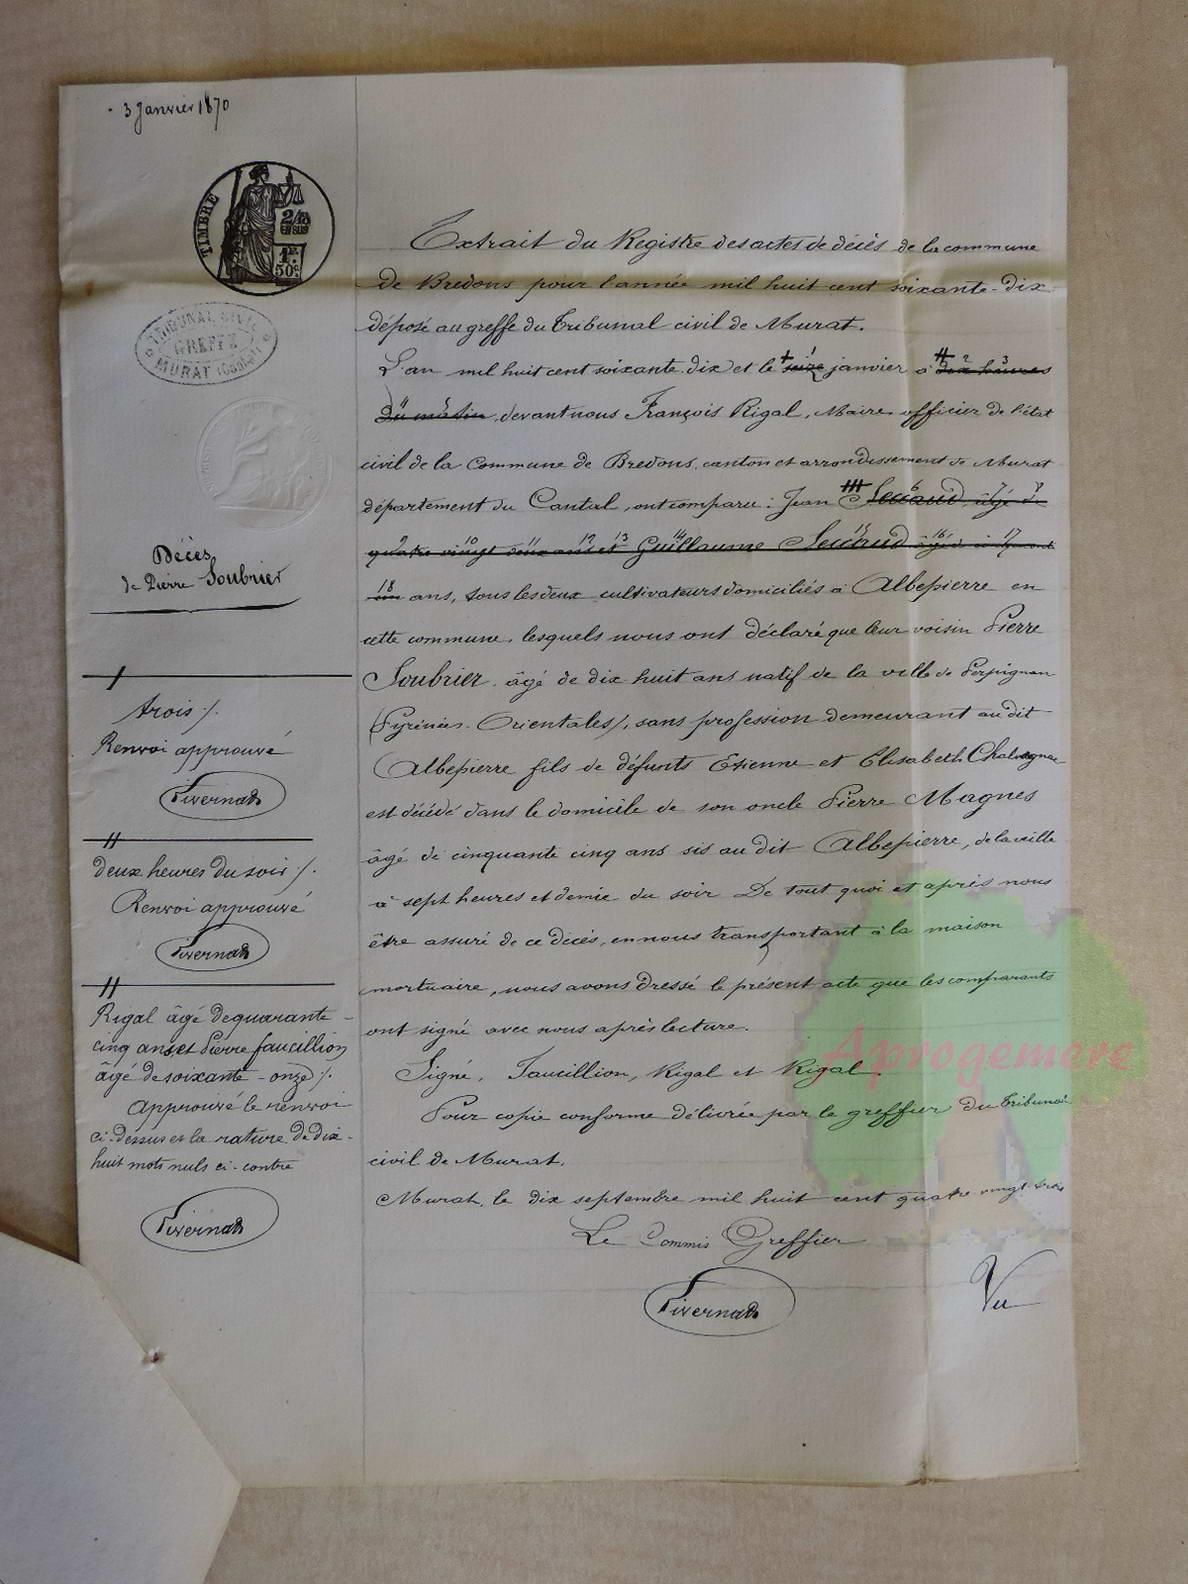 3 Janvier 1870
TIMBRE
2/10 EN SUS
1F. 50c.
TRIBUNAL CIVIL
GREFFE
MURAT (CANTAL)
Décès
de Pierre Soubrier
trois ./.
Renvoi approuvé
Tivernat
deux heures du soir ./.
Renvoi approuvé
Tivernat
Rigal âgé de quarante-
cinq ans et Pierre faucillion
âgé de soixante-onze ./.
Approuvé le renvoi
ci-dessus et la rature de dix-
huit mots nuls ci-contre
Tivernat
Extrait du Registre des actes de décès de la commune
de Bredons pour l'année mil huit cent soixante-dix
déposé au greffe du Tribunal civil de Murat.
L'an mil huit cent soixante dix et le seize janvier à dix heures
du matin, devant nous François Rigal, Maire officier de l'état
civil de la Commune de Bredons, canton et arrondissement de Murat
département du Cantal, ont comparu : Jean âgé de
quatre vingt deux ans et Guillaume âgé de
ans, tous les deux cultivateurs domiciliés à Albepierre en
cette commune, lesquels nous ont déclaré que leur voisin Pierre
Soubrier, âgé de dix huit ans natif de la ville de Perpignan
(Pyrénées-Orientales), sans profession demeurant au dit
Albepierre fils de défunts Etienne et Elisabeth
est décédé dans le domicile de son oncle Pierre Magnes
âgé de cinquante cinq ans sis au dit Albepierre, de la veille
à sept heures et demie du soir De tout quoi et après nous
être assuré de ce décès, en nous transportant à la maison
mortuaire, nous avons dressé le présent acte que les comparants
ont signé avec nous après lecture.
Signé, Faucillion, Rigal et Rigal.
Pour copie conforme délivrée par le greffier du Tribunal
civil de Murat.
Murat, le dix septembre mil huit cent quatre vingt trois
Le Commis Greffier
Tivernat
Vu
Aprogemere